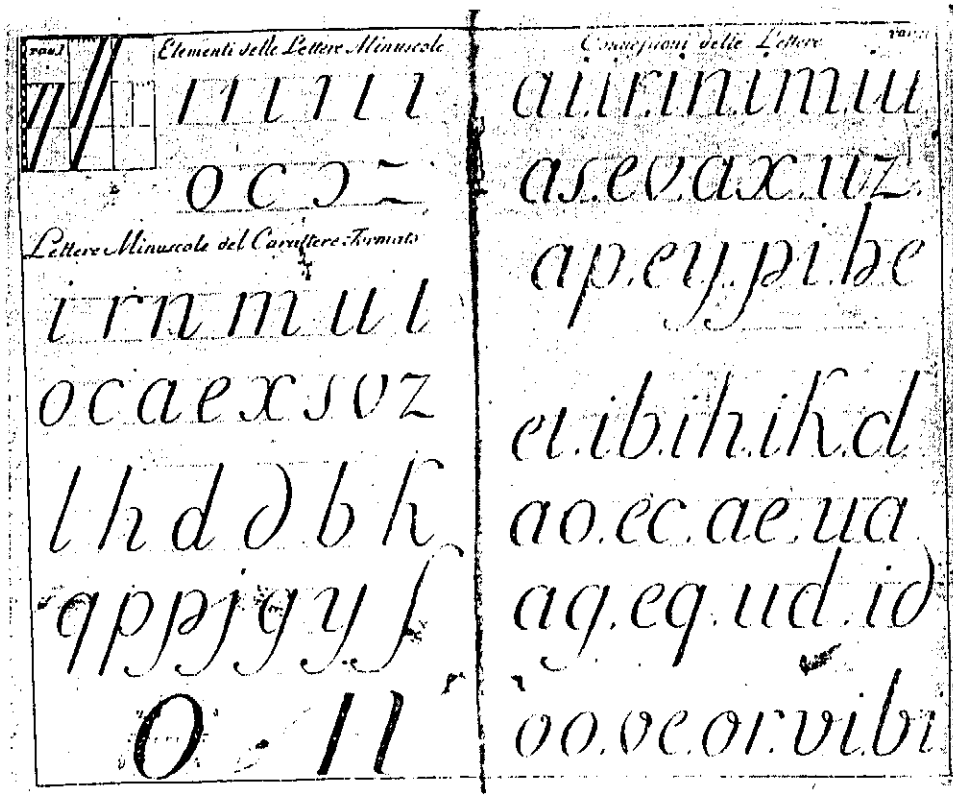 Tav. I
Elementi delle Lettere Minuscole
ı ı ı ı ı ı
o c ɔ
Lettere Minuscole del Carattere Formato
i r n m u t
o c a e x s v z
l h d ∂ b k
q p p j g y ſ
o . l l
Connessioni delle Lettere
Tav. II
ai.ir.in.im.iu
as.ev.ax.uz.
ap.ey.pi.he
et.ib.ih.ik.d
ao.ec.ae.ua
ag.eq.ud.i∂
oo.ve.or.vi.bi